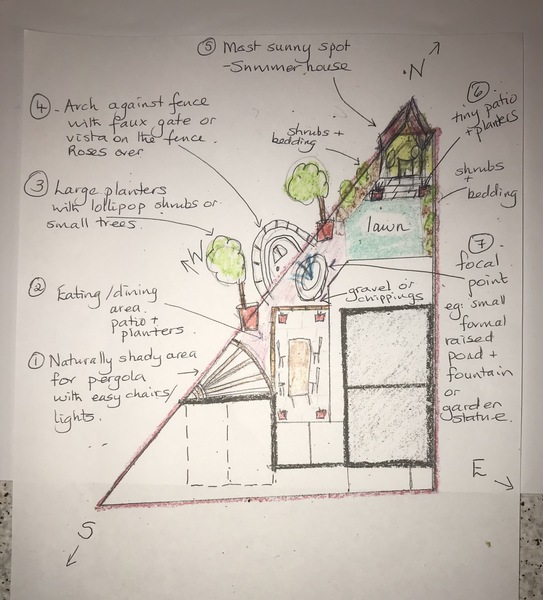 ⑤ Most sunny spot
- Summerhouse
N
④ - Arch against fence
with faux gate or
vista on the fence.
Roses over
⑥
tiny patio
+ planters
shrubs +
bedding
③ Large planters
with lollipop shrubs or
small trees.
shrubs
+
bedding
lawn
NW
② Eating/dining
area.
patio +
planters.
⑦
focal
point
eg: small
formal
raised
pond +
fountain
or
garden
statue.
gravel or
chippings
① Naturally shady area
for pergola
with easy chairs/
lights.
E
S